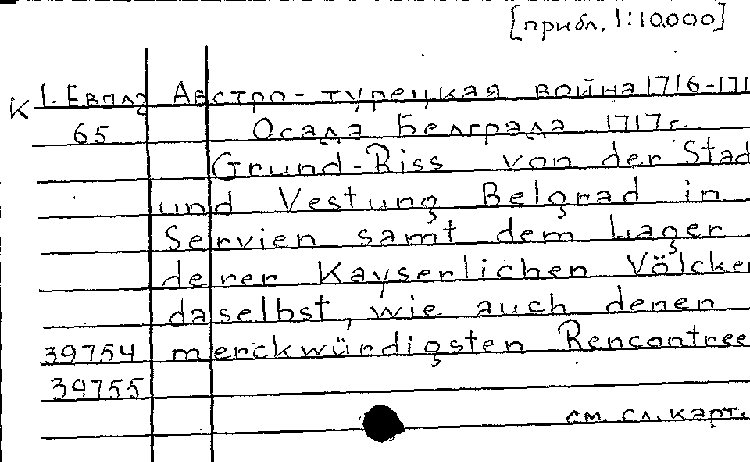 [прибл. 1:10.000]
К 1. Евпл2 Австро-турецкая война 1716-171
65 Осада Белграда 1717г.
Grund-Riss von der Stad
und Vestung Belgrad in
Servien samt dem Lager
derer Kayserlichen Völcker
daselbst, wie auch denen
39754 merckwürdigsten Rencontree
39755
см. сл. карт.